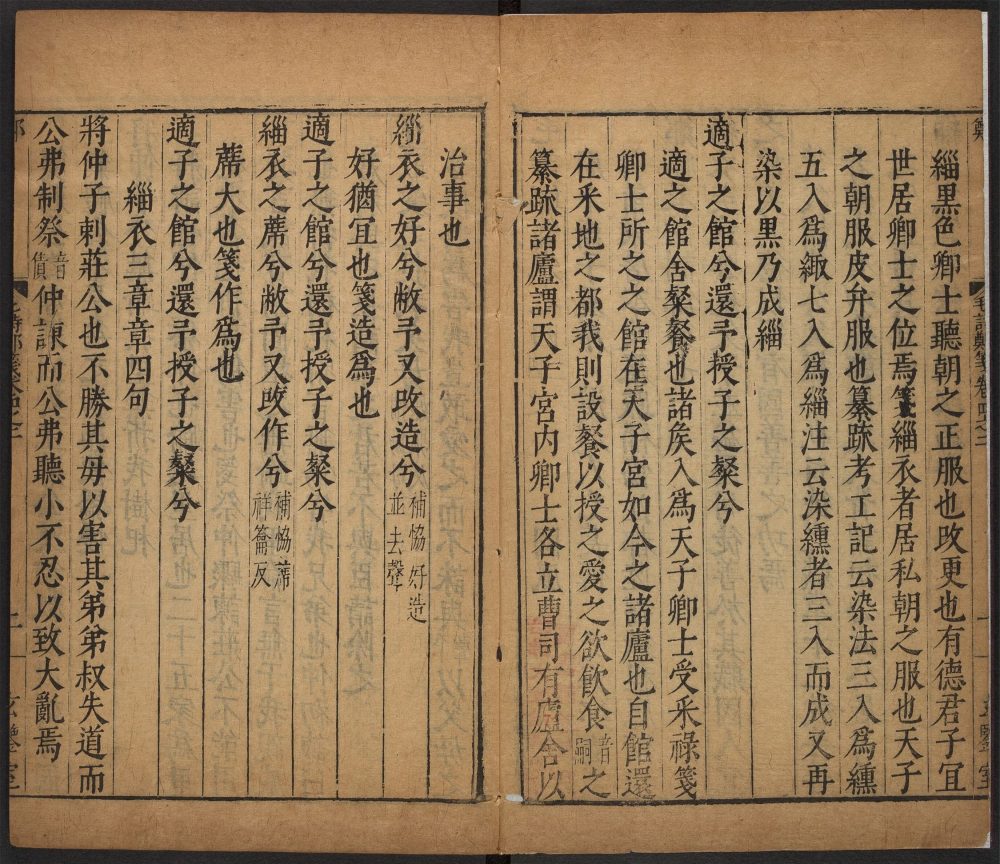 緇黒色卿士聽朝之正服也攺更也有德君子宜
世居卿士之位焉箋緇衣者居私朝之服也天子
之朝服皮弁服也纂䟽考工記云染法三入爲纁
五入爲緅七入爲緇注云染纁者三入而成又再
染以黒乃成緇
適子之館兮還予授子之粲兮
適之館舍粲餐也諸矦入爲天子卿士受采祿箋
卿士所之之館在天子宮如今之諸廬也自館還
在采地之都我則設餐以授之愛之欲飲食音嗣之
纂䟽諸廬謂天子宮内卿士各立曹司有廬舍以
治事也
緇衣之好兮敝予又攺造兮補恊好造並去聲
好猶宜也箋造爲也
適子之館兮還予授子之粲兮
緇衣之蓆兮敝予又攺作兮補恊蓆祥龠反
蓆大也箋作爲也
適子之館兮還予授子之粲兮
緇衣三章章四句
將仲子刺莊公也不勝其母以害其弟弟叔失道而
公弗制祭音債仲諫而公弗聽小不忍以致大亂焉